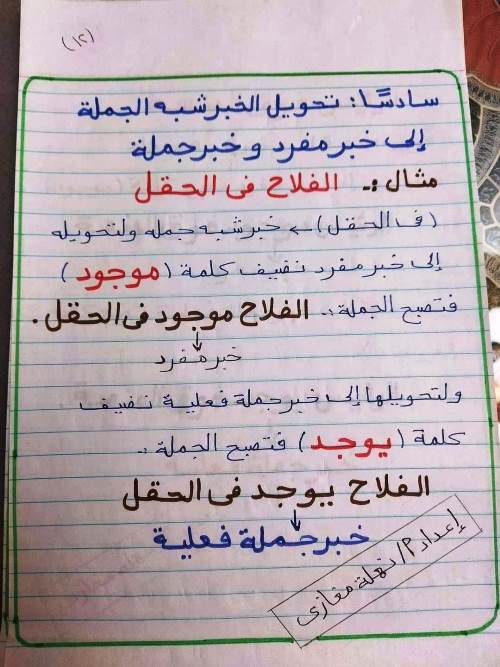 (١٢)
سادسًا: تحويل الخبر شبه الجملة
إلى خبر مفرد و خبر جملة
مثال :- الفلاح فى الحقل
(فى الحقل) ← خبر شبه جمله ولتحويله
إلى خبر مفرد نضيف كلمة (موجود)
فتصبح الجملة :- الفلاح موجود فى الحقل.
خبر مفرد
ولتحويلها إلى خبر جملة فعلية نضيف
كلمة (يوجد) فتصبح الجملة :-
الفلاح يوجد فى الحقل
خبر جملة فعلية
إعداد م/ نهلة مغازى